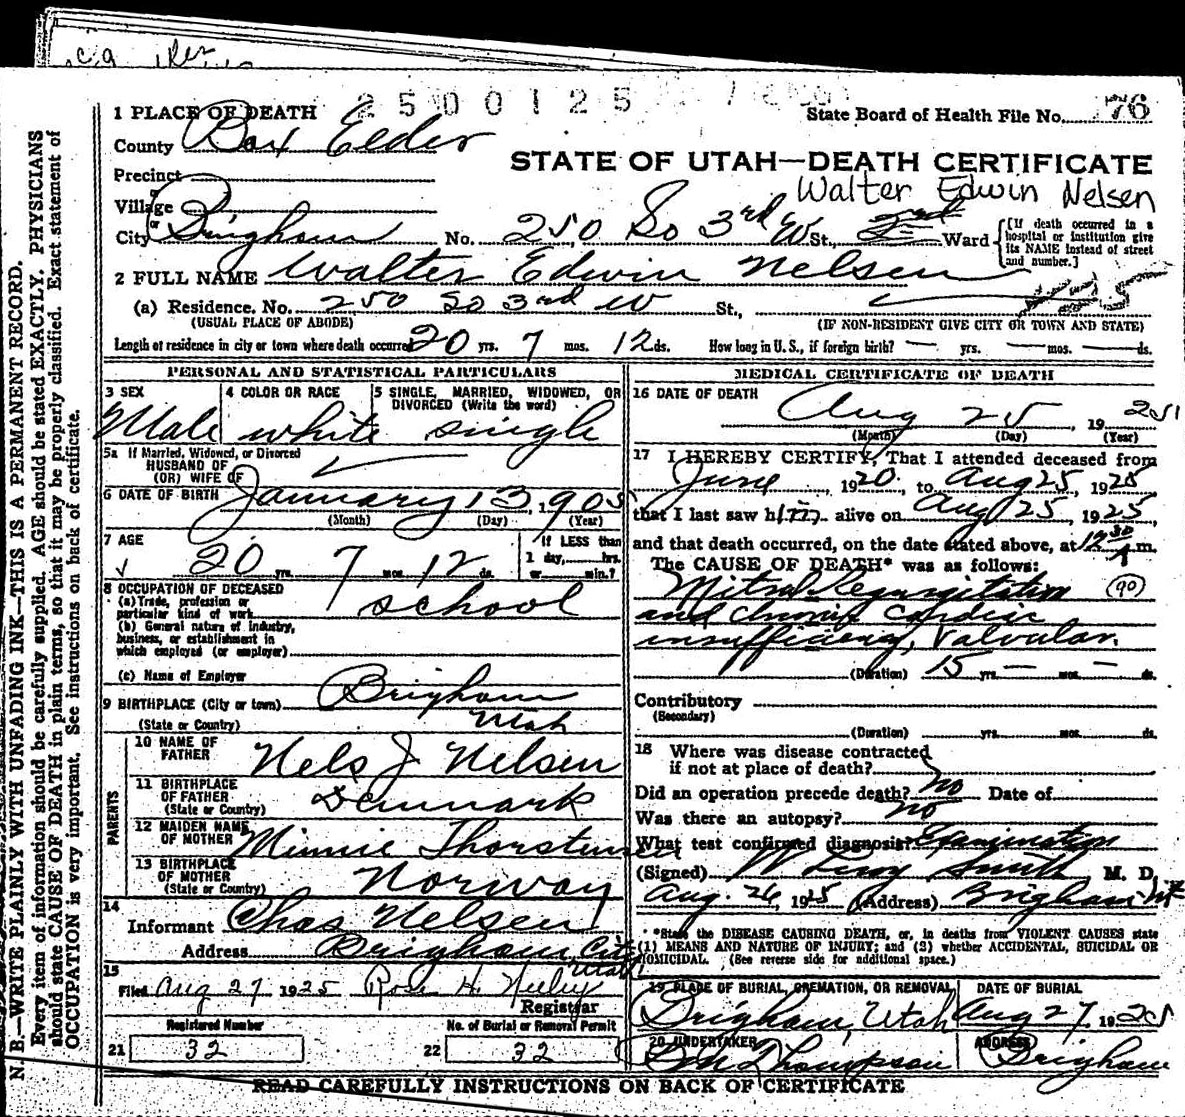 2500125
1 PLACE OF DEATH
State Board of Health File No. 76
County Box Elder
STATE OF UTAH—DEATH CERTIFICATE
Precinct
Walter Edwin Nelsen
or
Village
or
City Brigham No. 250 So 3rd W St., Ward
[If death occurred in a hospital or institution give its NAME instead of street and number.]
2 FULL NAME Walter Edwin Nelsen
(a) Residence. No. 250 So 3rd W St.,
(USUAL PLACE OF ABODE) (IF NON-RESIDENT GIVE CITY OR TOWN AND STATE)
Length of residence in city or town where death occurred 20 yrs. 7 mos. 12 ds. How long in U. S., if foreign birth? — yrs. — mos. — ds.
PERSONAL AND STATISTICAL PARTICULARS
3 SEX 4 COLOR OR RACE 5 SINGLE, MARRIED, WIDOWED, OR DIVORCED (Write the word)
Male white single
5a If Married, Widowed, or Divorced
HUSBAND OF
(OR) WIFE OF
6 DATE OF BIRTH January 13, 1905
(Month) (Day) (Year)
7 AGE 20 yrs. 7 mos. 12 ds.
If LESS than
1 day, hrs.
or min.?
8 OCCUPATION OF DECEASED
(a) Trade, profession or
particular kind of work school
(b) General nature of industry,
business, or establishment in
which employed (or employer)
(c) Name of Employer
9 BIRTHPLACE (City or town) Brigham
(State or Country) Utah
PARENTS
10 NAME OF
FATHER Nels J Nelsen
11 BIRTHPLACE
OF FATHER Denmark
(State or Country)
12 MAIDEN NAME
OF MOTHER Minnie Thorstensen
13 BIRTHPLACE
OF MOTHER Norway
(State or Country)
14
Informant Chas Nelsen
Address Brigham City
Utah
15
Filed Aug 27 1925
Registrar
Registered Number No. of Burial or Removal Permit
21 32 22 32
MEDICAL CERTIFICATE OF DEATH
16 DATE OF DEATH
Aug 25, 1925
(Month) (Day) (Year)
17 I HEREBY CERTIFY, That I attended deceased from
June, 1920, to Aug 25, 1925
that I last saw him alive on Aug 25, 1925,
and that death occurred, on the date stated above, at 12 30 A m.
The CAUSE OF DEATH* was as follows:
Mitral Regurgitation (90)
and chronic cardiac
insufficiency, Valvular.
(Duration) 15 yrs. — mos. — ds.
Contributory
(Secondary)
(Duration) yrs. mos. ds.
18 Where was disease contracted
if not at place of death?
Did an operation precede death? no Date of
Was there an autopsy? no
What test confirmed diagnosis? Examination
(Signed) W Leroy Smith M. D.
Aug. 26, 1925 (Address) Brigham Ut
*State the DISEASE CAUSING DEATH, or, in deaths from VIOLENT CAUSES state
(1) MEANS AND NATURE OF INJURY; and (2) whether ACCIDENTAL, SUICIDAL OR
HOMICIDAL. (See reverse side for additional space.)
19 PLACE OF BURIAL, CREMATION, OR REMOVAL DATE OF BURIAL
Brigham, Utah Aug 27, 1925
20 UNDERTAKER ADDRESS
Thompson Brigham
READ CAREFULLY INSTRUCTIONS ON BACK OF CERTIFICATE
N. B.—WRITE PLAINLY WITH UNFADING INK—THIS IS A PERMANENT RECORD.
Every item of information should be carefully supplied. AGE should be stated EXACTLY. PHYSICIANS
should state CAUSE OF DEATH in plain terms, so that it may be properly classified. Exact statement of
OCCUPATION is very important. See instructions on back of certificate.